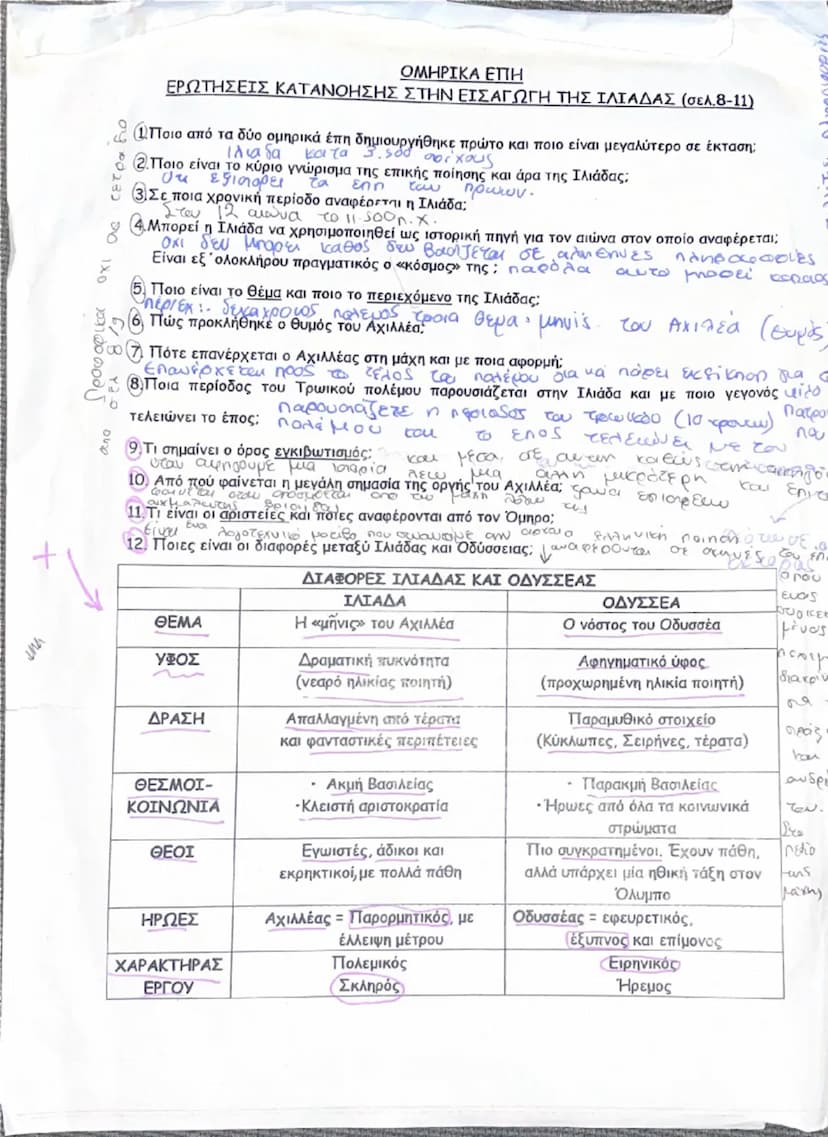 ΟΜΗΡΙΚΑ ΕΠΗ
ΕΡΩΤΗΣΕΙΣ ΚΑΤΑΝΟΗΣΗΣ ΣΤΗΝ ΕΙΣΑΓΩΓΗ ΤΗΣ ΙΛΙΑΔΑΣ (σελ.8-11)
1.Ποιο από τα δύο ομηρικά έπη δημιουργήθηκε πρώτο και ποιο είναι μεγαλύτερο σε έκταση;
Ιλιαδα κατα 3.500 στιχους
2.Ποιο είναι το κύριο γνώρισμα της επικής ποίησης και άρα της Ιλιάδας;
Οτι εξιστορει τα επη των ηρωων.
3.Σε ποια χρονική περίοδο αναφέρεται η Ιλιάδα;
Στον 12 αιωνα το 11.500 π.χ.
4.Μπορεί η Ιλιάδα να χρησιμοποιηθεί ως ιστορική πηγή για τον αιώνα στον οποίο αναφέρεται;
οχι δεν μπορει καθος δεν βασιζεται σε αληθινες πληροφορίες
Είναι εξ΄ολοκλήρου πραγματικός ο «κόσμος» της; παρολα αυτα μπορει
5. Ποιο είναι το θέμα και ποιο το περιεχόμενο της Ιλιάδας;
περιεχ:. δεκαχρονος πολεμος τροια θεμα: μηνις του Αχιλεά (θυμός)
6. Πώς προκλήθηκε ο θυμός του Αχιλλέα;
7. Πότε επανέρχεται ο Αχιλλέας στη μάχη και με ποια αφορμή;
Επανέρχεται προς το τέλος του πολέμου για να πάρει εκδίκηση για
8.Ποια περίοδος του Τρωικού πολέμου παρουσιάζεται στην Ιλιάδα και με ποιο γεγονός
τελειώνει το έπος; παρουσιάζετε η περιοδος του τρωικου (10 χρονων)
πολέμου και το επος τελειωνει με τον
9.Τι σημαίνει ο όρος εγκιβωτισμός; και μεσα σε αυτην καθως
οταν αφηγουμε μια ιστορια λεω μια αλλη μικρότερη και
10. Από πού φαίνεται η μεγάλη σημασία της οργής του Αχιλλέα;
11.Τι είναι οι αριστείες και ποιες αναφέρονται από τον Όμηρο;
είναι ενα λογοτεχνικο
12. Ποιες είναι οι διαφορές μεταξύ Ιλιάδας και Οδύσσειας; αναφέρονται σε σκηνές
ΔΙΑΦΟΡΕΣ ΙΛΙΑΔΑΣ ΚΑΙ ΟΔΥΣΣΕΑΣ
ΙΛΙΑΔΑ ΟΔΥΣΣΕΑ
ΘΕΜΑ Η «μῆνις» του Αχιλλέα Ο νόστος του Οδυσσέα
ΥΦΟΣ Δραματική πυκνότητα Αφηγηματικό ύφος
(νεαρό ηλικίας ποιητή) (προχωρημένη ηλικία ποιητή)
ΔΡΑΣΗ Απαλλαγμένη από τέρατα Παραμυθικό στοιχείο
και φανταστικές περιπέτειες (Κύκλωπες, Σειρήνες, τέρατα)
ΘΕΣΜΟΙ- · Ακμή Βασιλείας · Παρακμή Βασιλείας
ΚΟΙΝΩΝΙΑ ·Κλειστή αριστοκρατία ·Ήρωες από όλα τα κοινωνικά
στρώματα
ΘΕΟΙ Εγωιστές, άδικοι και Πιο συγκρατημένοι. Έχουν πάθη,
εκρηκτικοί,με πολλά πάθη αλλά υπάρχει μία ηθική τάξη στον
Όλυμπο
ΗΡΩΕΣ Αχιλλέας = Παρορμητικός, με Οδυσσέας = εφευρετικός,
έλλειψη μέτρου έξυπνος και επίμονος
ΧΑΡΑΚΤΗΡΑΣ Πολεμικός Ειρηνικός
ΕΡΓΟΥ Σκληρός Ήρεμος